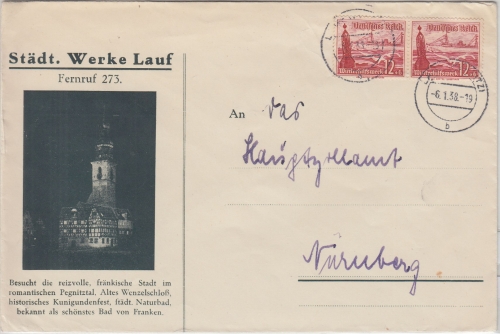 Städt. Werke Lauf
Fernruf 273.
Besucht die reizvolle, fränkische Stadt im
romantischen Pegnitztal. Altes Wenzelschloß,
historisches Kunigundenfest, städt. Naturbad,
bekannt als schönstes Bad von Franken.
Deutsches Reich
12+6
Winterhilfswerk
Deutsches Reich
12+6
Winterhilfswerk
-6.1.38.-19
b
An das
Hauptzollamt
Nürnberg